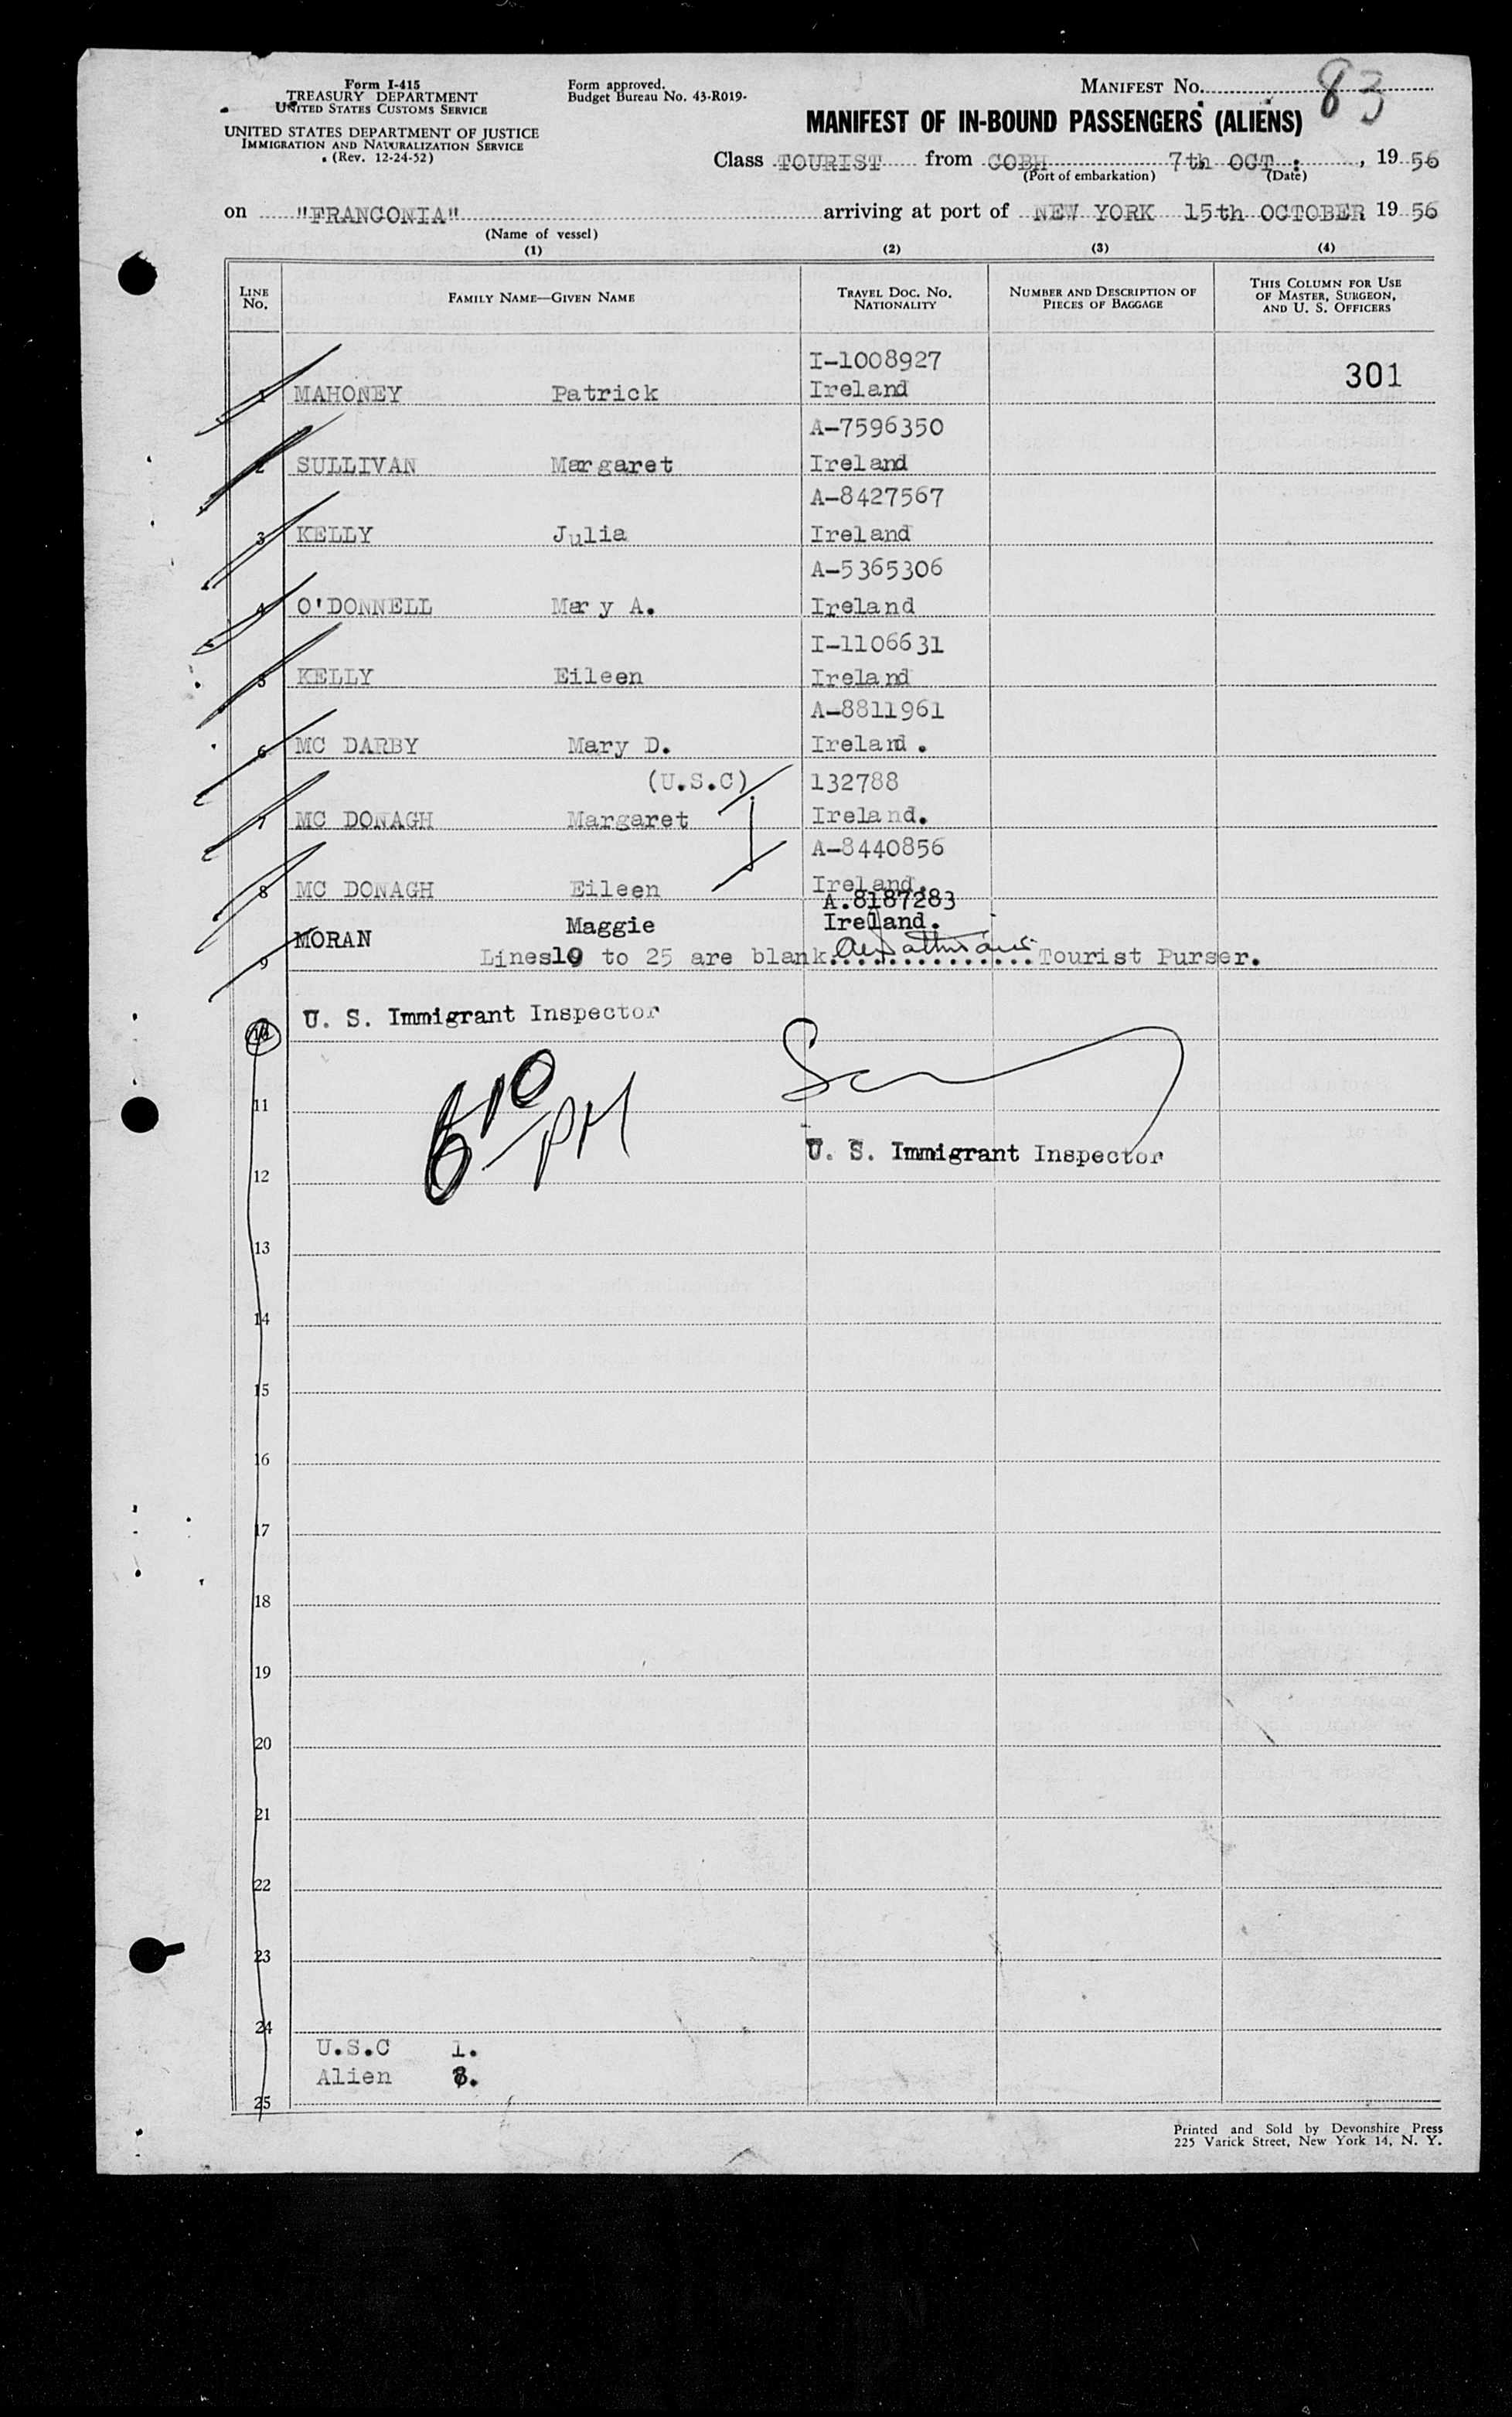 Form I-415
TREASURY DEPARTMENT
UNITED STATES CUSTOMS SERVICE
UNITED STATES DEPARTMENT OF JUSTICE
IMMIGRATION AND NATURALIZATION SERVICE
(Rev. 12-24-52)
Form approved.
Budget Bureau No. 43-R019-
MANIFEST No. 83
MANIFEST OF IN-BOUND PASSENGERS (ALIENS)
Class TOURIST from COBH 7th OCT : , 19 56
(Port of embarkation) (Date)
on "FRANCONIA" arriving at port of NEW YORK 15th OCTOBER 19 56
(Name of vessel)
(1) (2) (3) (4)
LINE No. FAMILY NAME—GIVEN NAME TRAVEL DOC. No. NATIONALITY NUMBER AND DESCRIPTION OF PIECES OF BAGGAGE THIS COLUMN FOR USE OF MASTER, SURGEON, AND U. S. OFFICERS
I-1008927 301
1 MAHONEY Patrick Ireland
A-7596350
2 SULLIVAN Margaret Ireland
A-8427567
3 KELLY Julia Ireland
A-5365306
4 O'DONNELL Mary A. Ireland
I-1106631
5 KELLY Eileen Ireland
A-8811961
6 MC DARBY Mary D. Ireland.
(U.S.C) 132788
7 MC DONAGH Margaret Ireland.
A-8440856
8 MC DONAGH Eileen Ireland.
A.8187283
MORAN Maggie Ireland.
9 Lines10 to 25 are blank. Tourist Purser.
10 U. S. Immigrant Inspector
6 10 PM
11
U. S. Immigrant Inspector
12
13
14
15
16
17
18
19
20
21
22
23
24
U.S.C 1.
Alien 8.
25
Printed and Sold by Devonshire Press
225 Varick Street, New York 14, N. Y.